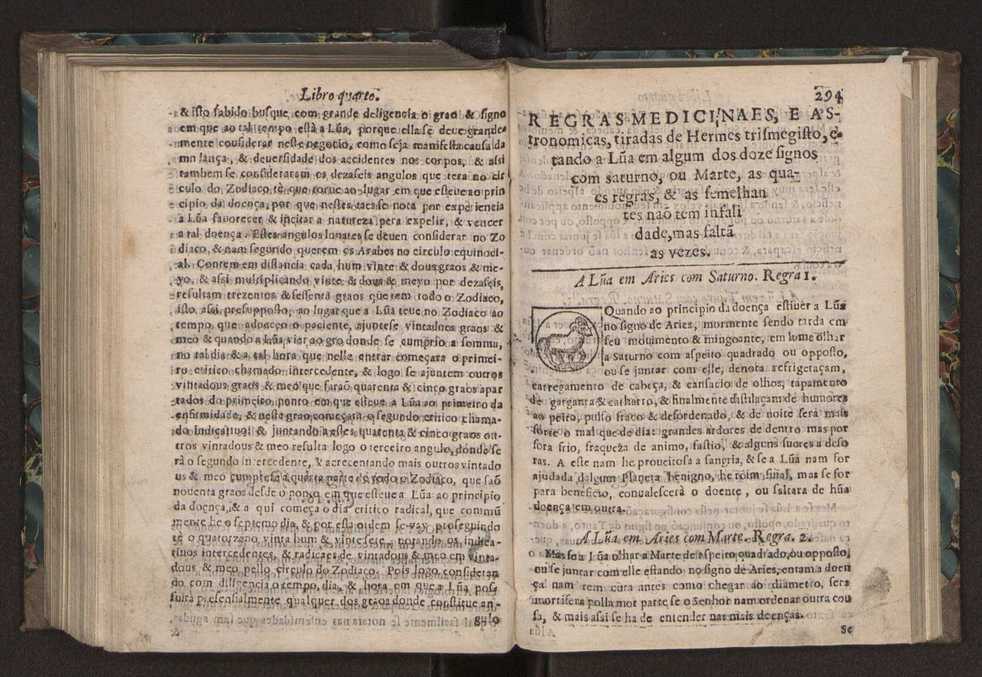 Libro quarto.
& isto sabido busque com grande deligencia o grao & signo
em que ao tal tempo està a Lũa, porque ella se deve grande-
mente considerar neste negocio, como seja manifesta causa da
mudança, & deversidade dos accidentes nos corpos, & assi
tambem se consideraram os dezaseis angulos que tera no cir
culo do Zodiaco tè que torne ao lugar em que esteve ao prin
cipio da doença, por que nestes tacs se nota por experiencia
a Lũa favorecer & incitar a natureza pera expelir, & vencer
a tal doença. Estes angulos lunares se devem considerar no Zo
diaco, & nam segundo querem os Arabes no circulo equinoci-
al. Contem em distancia cada hum vinte & dous graos & me-
yo, & assi multiplicando vinte & dous & meyo por dezaseis,
resultam trezentos & sessenta graos que tem todo o Zodiaco,
isto assi presupposto, ao lugar que a Lũa teve no Zodiaco ao
tempo que adoeceo o paciente, ajuntese vintadous graos &
meo & quando a Lũa vier ao gro donde se cumprio a somma,
no tal dia & a tal hora que nelle entrar começara o primei-
ro critico chamado intercedente, & logo se ajuntem outros
vintadous graos & meo que faraõ quarenta & cinco graos apar
tados do primeiro ponto em que esteve a Lũa ao primeiro da
enfirmidade, & neste grao começara o segundo critico chama-
do indicativo! & juntando a estes quarenta & cinco graos ou-
tros vintadous & meo resulta logo o terceiro angulo, donde se
rà o segundo intercedente, & acrecentando mais outros vintado
us & meo cumprese a quarta parte de todo o Zodiaco, que saõ
noventa graos desde o ponto em que esteve a Lũa ao principio
da doença, & a qui começa o dia critico radical, que commũ
mente he o septemo dia, & por esta ordem se vay proseguindo
tè o quatorzano, vinte hum & vintesete, notando os indica-
tivos intercedentes, & radicaes de vintadous & meo em vinta-
dous & meo pello circulo do Zodiaco. Pois logo consideran
do com diligencia o tempo, dia, & hora em que a Lũa pos
suirà presensialmente qualquer dos graos donde constitue an-
gulo
294
REGRAS MEDICINAES, E AS-
tronomicas, tiradas de Hermes trismegisto, es
tando a Lũa em algum dos doze signos
com saturno, ou Marte, as qua-
es regras, & as semelhan
tes naõ tem infali
dade, mas faltã
as vezes.
A Lũa em Aries com Saturno. Regra 1.
Quando ao principio da doença estiver a Lũa
no signo de Aries, mormente sendo tarda em
seu movimento & mingoante, em lume olhar
a Saturno com aspeito quadrado ou opposto,
ou se juntar com elle, denota refrigetaçam,
carregamento de cabeça, & cansacio de olhos, tapamento
de garganta & catharro, & finalmente distilaçam de humores
ao peito, pulso fraco & desordenado, & de noite serà mais
forte o mal que de dia: grandes ardores de dentro mas por
fora frio, fraqueza de animo, fastio, & alguns suores a deso
ras. A este nam he proveitosa a sangria, & se a Lũa nam for
ajudada dalgum Planeta benigno, he roim sinal, mas se for
para beneficio, convalescerà o doente, ou saltara de hũa
doença em outra.
A Lũa em Aries com Marte. Regra. 2.
Mas se a Lũa olhar a Marte de aspeito quadrado, ou opposto,
ou se juntar com elle estando no signo de Aries, entam a doen
ça nam tem cura antes como chegar ao diametro, serà
mortifera polla mor parte se o Senhor nam ordenar outra cou
sa, & mais assi se ha de entender nas mais doenças.
Se